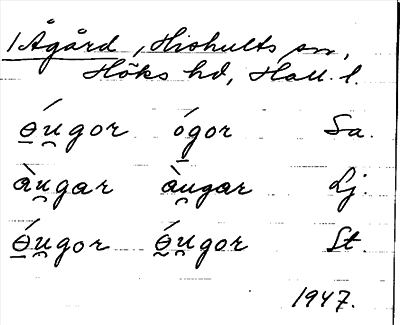 1 Ågård, Hishults sn,
Höks hd, Hall. l.
ɵ̠́u̯gor ó̠gor Sa.
àu̯gar àu̯gar Lj.
ɵ̠́u̯gor ɵ̠́u̯gor St.
1947.